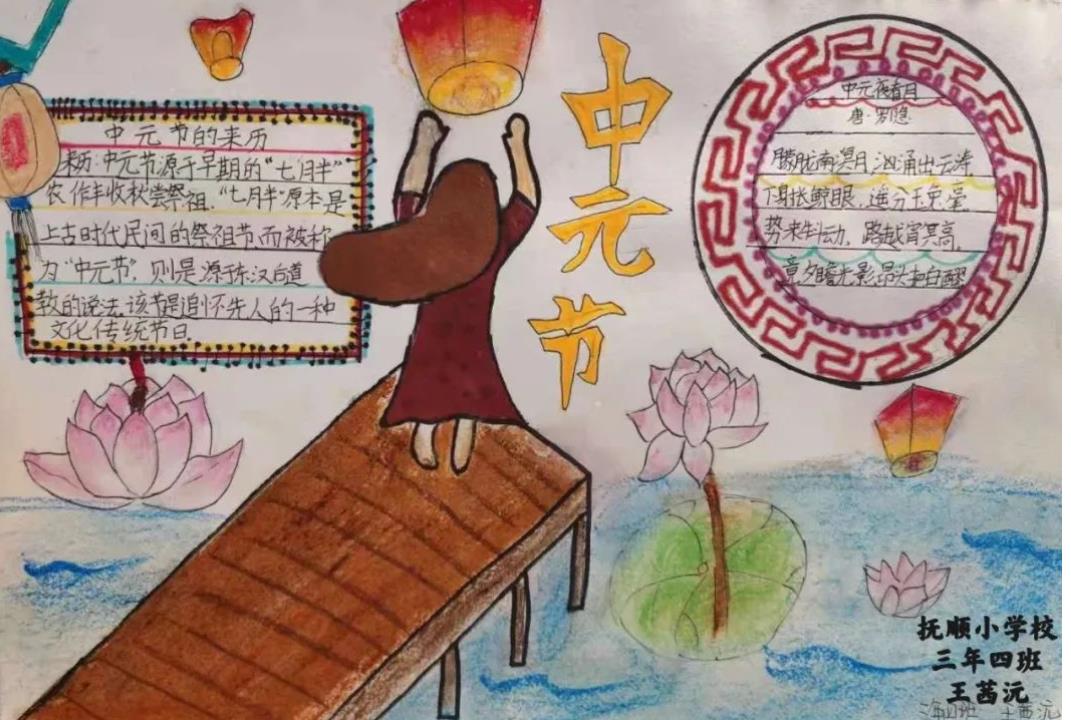 中元节的来历
来历:中元节源于早期的"七月半"
农作丰收秋尝祭祖。"七月半"原本是
上古时代民间的祭祖节,而被称
为"中元节",则是源于东汉后道
教的说法.该节是追怀先人的一种
文化传统节日.
中元节
中元夜看月
唐·罗隐
朦胧南溟月,汹涌出云涛
下射长鲸眼,遥分玉兔毫
势来 动,路越霄冥高,
竟夕瞻光影,昂头把白醪
抚顺小学校
三年四班
王茜沅
王茜沅